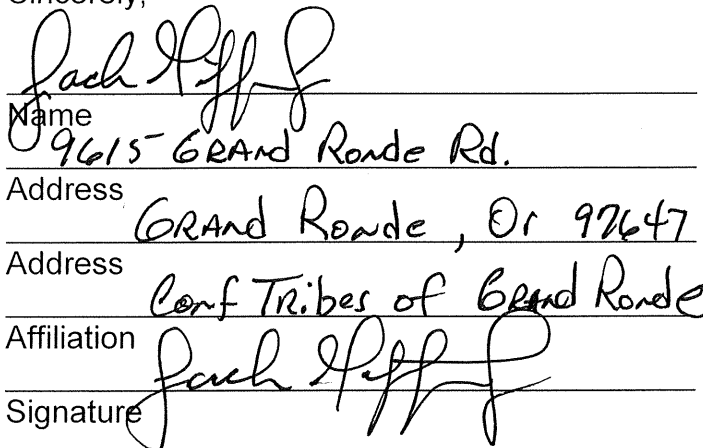 Sincerely,
Jack Giffen Jr
Name
9615 GRANd Ronde Rd.
Address
GRANd Ronde, Or 97647
Address
Conf TRibes of GRANd Ronde
Affiliation
Jack Giffen Jr
Signature